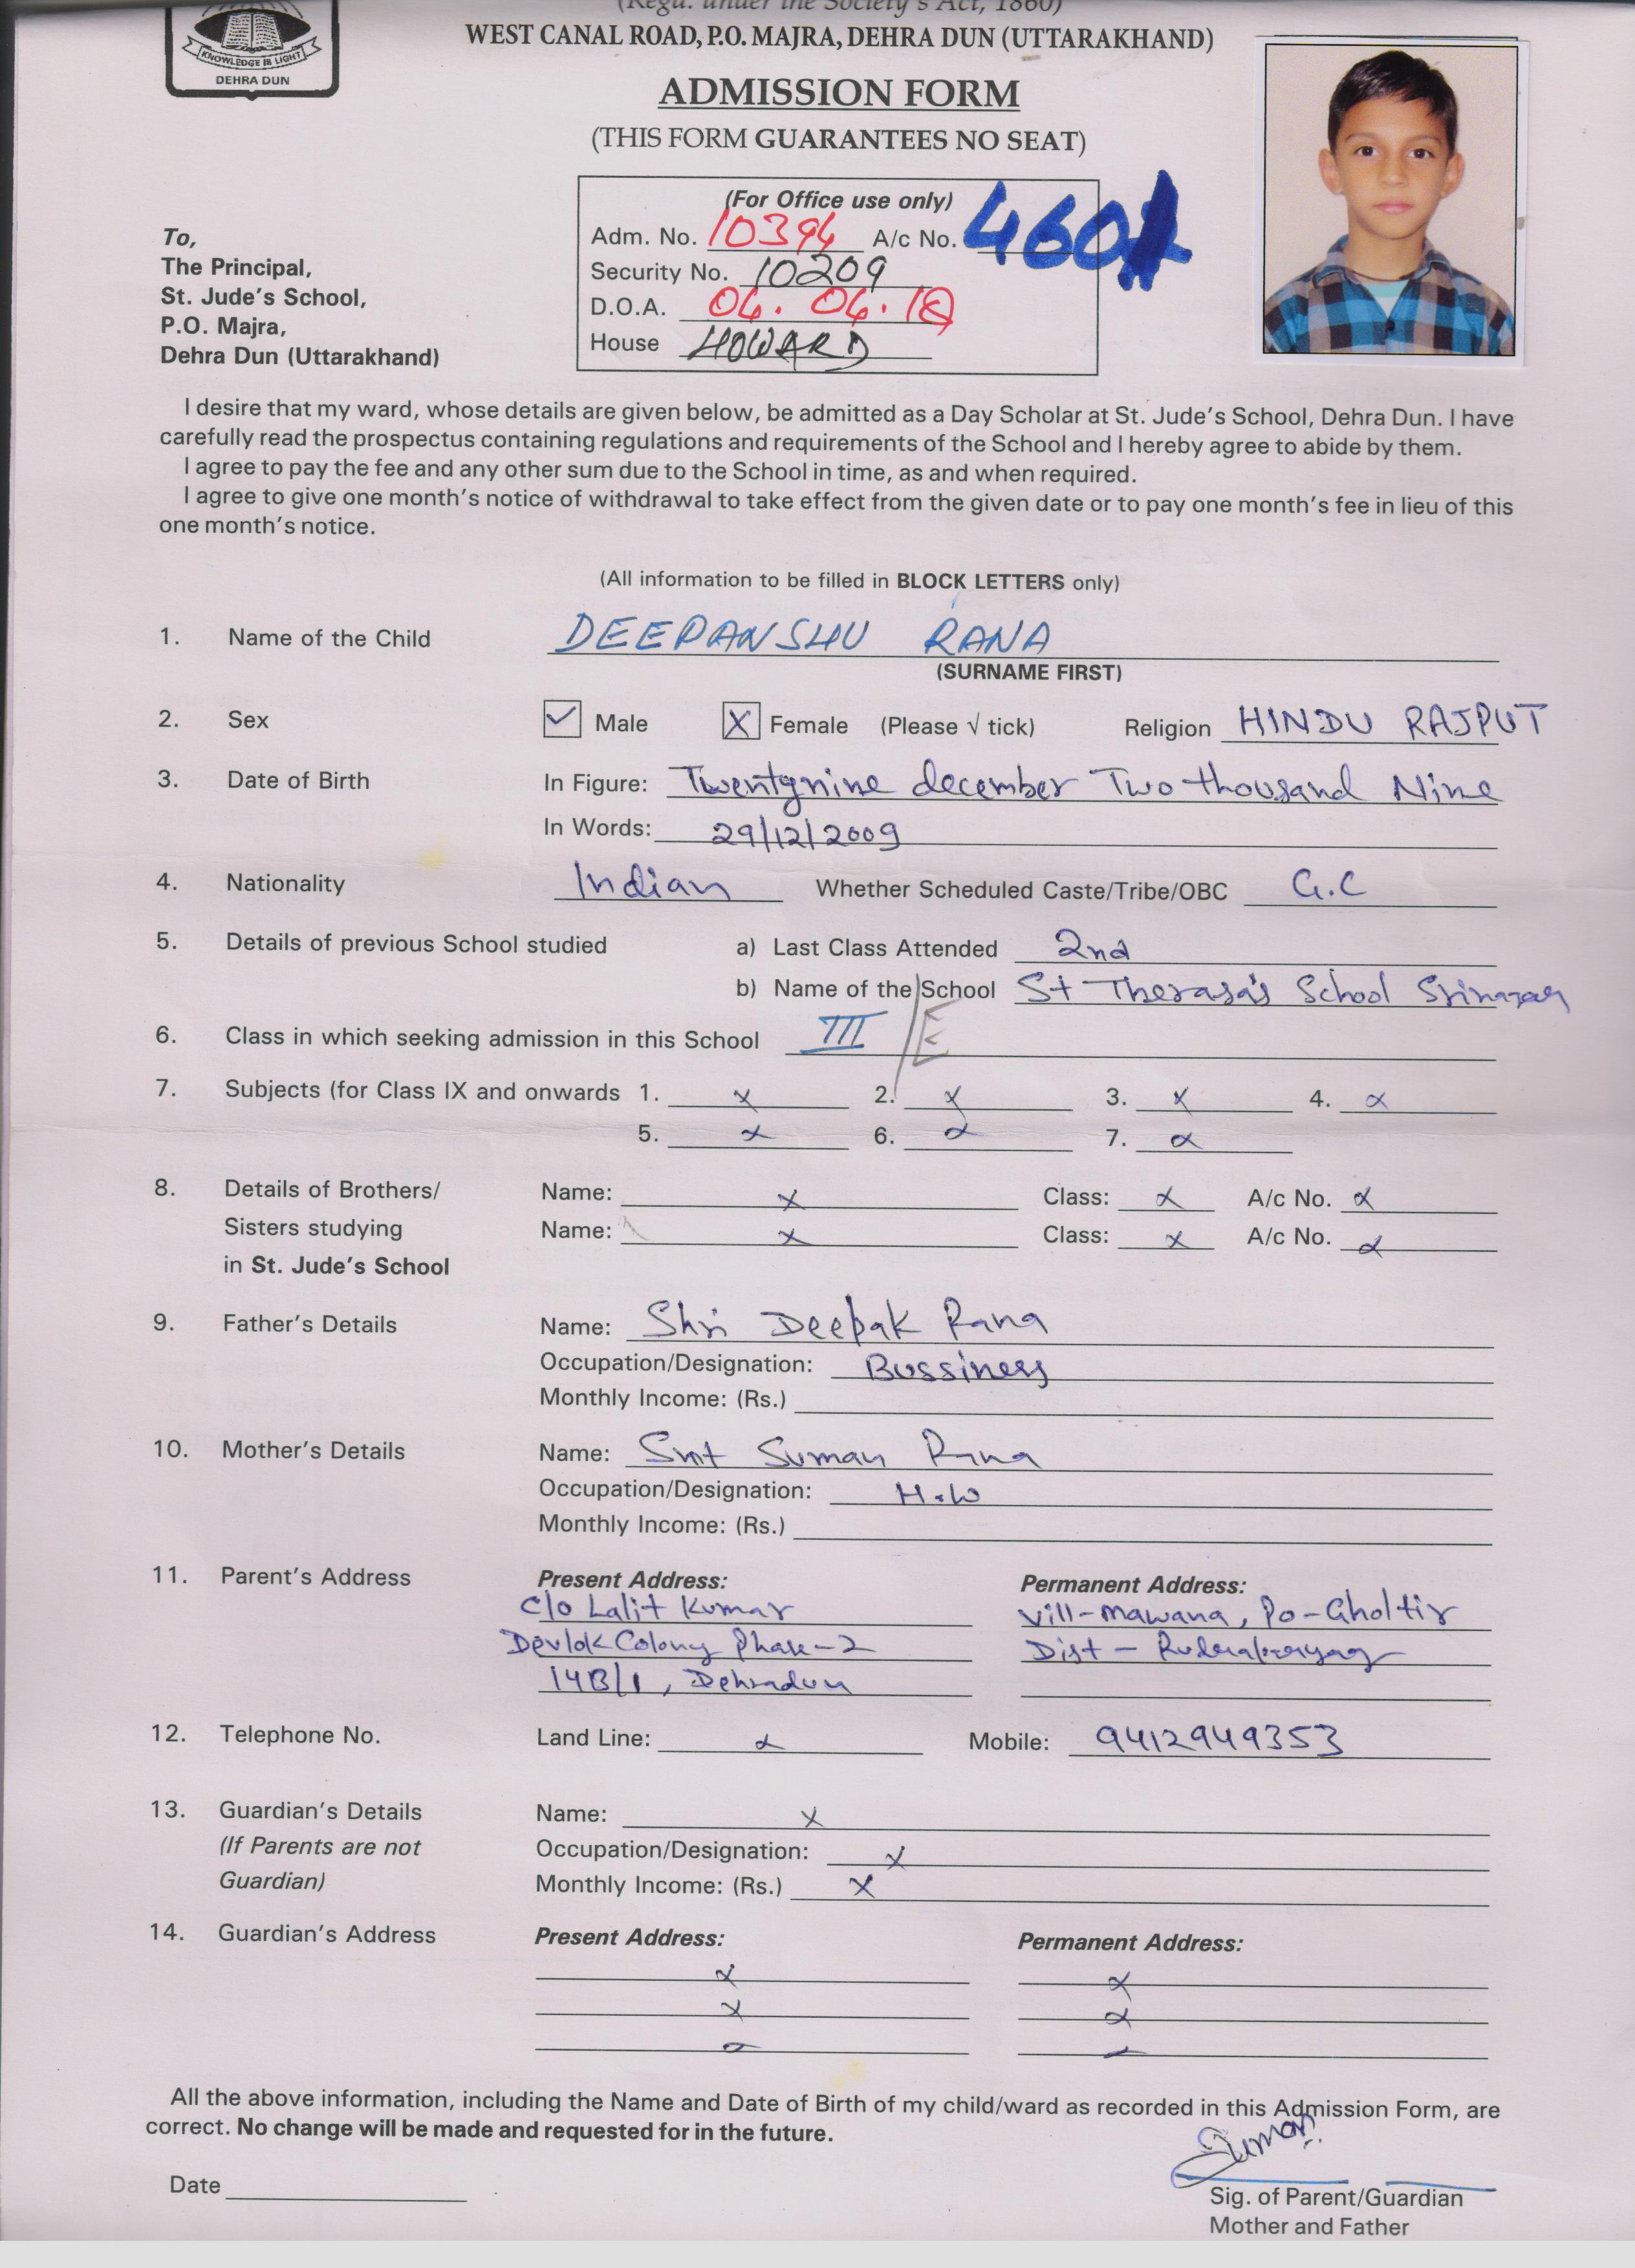 (Regd. under the Society's Act, 1860)
WEST CANAL ROAD, P.O. MAJRA, DEHRA DUN (UTTARAKHAND)
KNOWLEDGE IS LIGHT
DEHRA DUN
ADMISSION FORM
(THIS FORM GUARANTEES NO SEAT)
(For Office use only)
Adm. No. 10394 A/c No. 460
Security No. 10209
D.O.A. 04. 04. 18
House HOWARD
To,
The Principal,
St. Jude's School,
P.O. Majra,
Dehra Dun (Uttarakhand)
I desire that my ward, whose details are given below, be admitted as a Day Scholar at St. Jude's School, Dehra Dun. I have
carefully read the prospectus containing regulations and requirements of the School and I hereby agree to abide by them.
I agree to pay the fee and any other sum due to the School in time, as and when required.
I agree to give one month's notice of withdrawal to take effect from the given date or to pay one month's fee in lieu of this
one month's notice.
(All information to be filled in BLOCK LETTERS only)
1. Name of the Child DEEPANSHU RANA
(SURNAME FIRST)
2. Sex ✓ Male X Female (Please √ tick) Religion HINDU RAJPUT
3. Date of Birth In Figure: Twentynine december Two thousand Nine
In Words: 29/12/2009
4. Nationality Indian Whether Scheduled Caste/Tribe/OBC G.C
5. Details of previous School studied a) Last Class Attended 2nd
b) Name of the School St Therasa's School Srinagar
6. Class in which seeking admission in this School III /E
7. Subjects (for Class IX and onwards 1. x 2. x 3. x 4. x
5. x 6. x 7. x
8. Details of Brothers/ Name: x Class: x A/c No. x
Sisters studying Name: x Class: x A/c No. x
in St. Jude's School
9. Father's Details Name: Shri Deepak Rana
Occupation/Designation: Bussiness
Monthly Income: (Rs.)
10. Mother's Details Name: Smt Suman Rana
Occupation/Designation: H.W
Monthly Income: (Rs.)
11. Parent's Address Present Address: Permanent Address:
C/o Lalit Kumar Vill-Mawana, Po-Gholtir
Devlok Colony Phase-2 Dist - Rudraprayag
14B/1, Dehradun
12. Telephone No. Land Line: x Mobile: 9412949353
13. Guardian's Details Name: x
(If Parents are not Occupation/Designation: x
Guardian) Monthly Income: (Rs.) x
14. Guardian's Address Present Address: Permanent Address:
x x
x x
All the above information, including the Name and Date of Birth of my child/ward as recorded in this Admission Form, are
correct. No change will be made and requested for in the future.
Suman
Date
Sig. of Parent/Guardian
Mother and Father